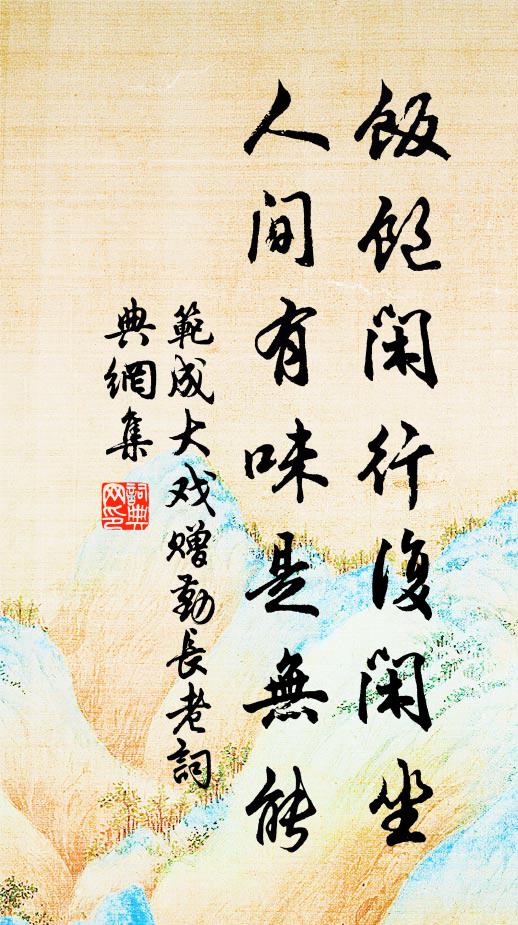 飯飽閑行復閑坐
人间有味是無能
範成大戏赠勤長老詞
典網集
詞典
网印